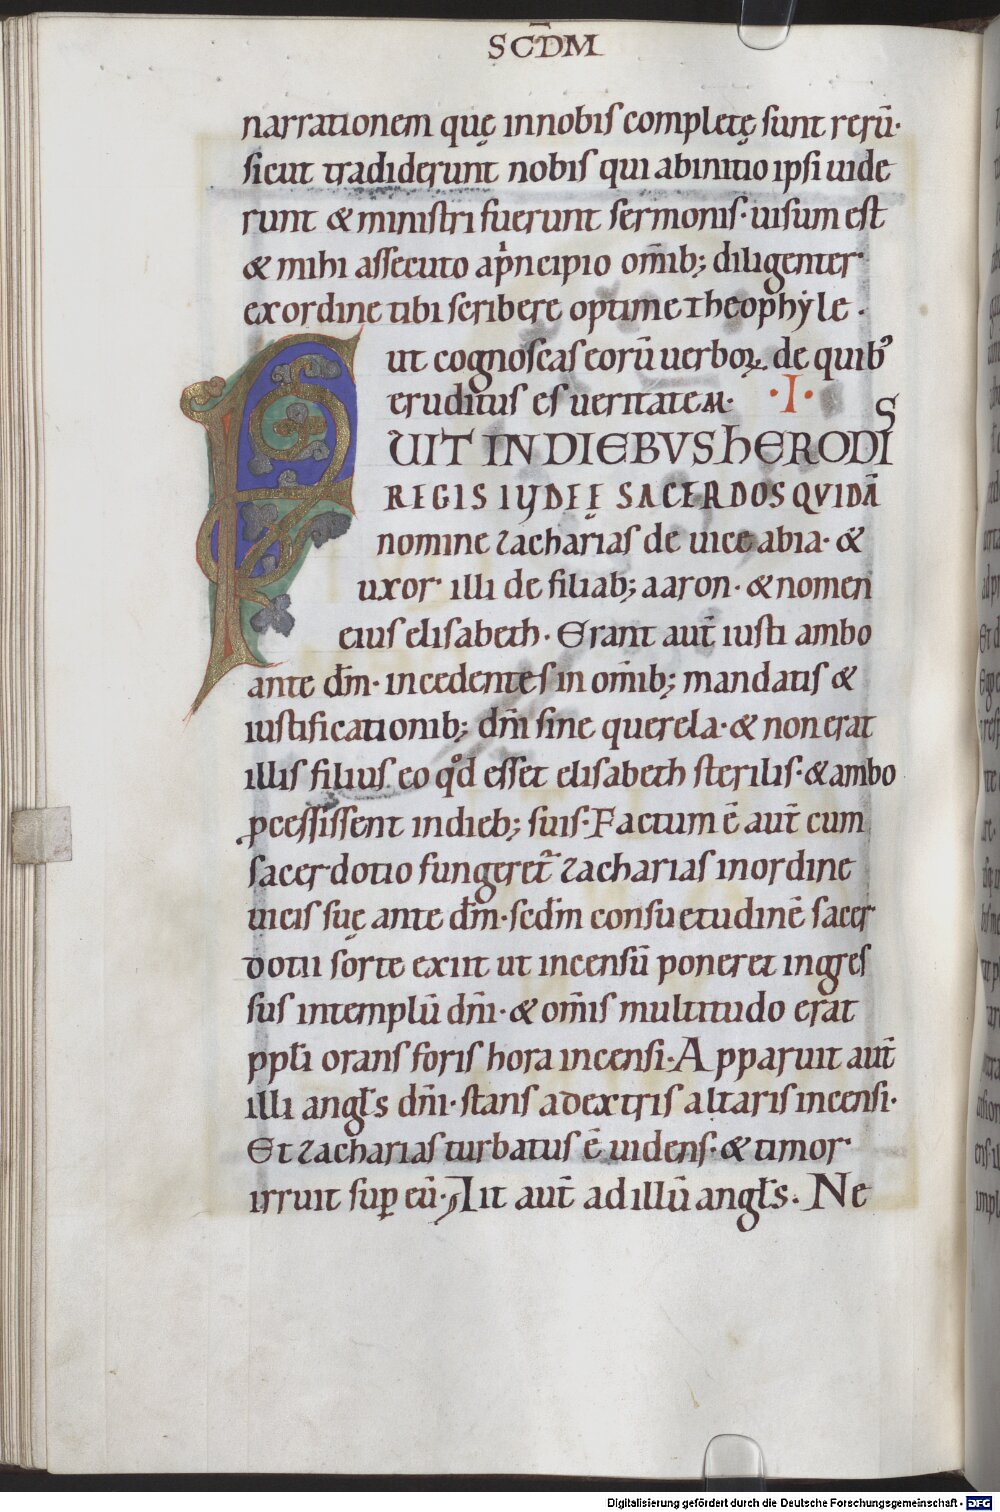 SCD̄M
narrationem quę innobis completę sunt rerū·
sicut tradiderunt nobis qui abinitio ipsi uide
runt & ministri fuerunt sermonis· uisum est
& mihi assecuto ap̍ncipio om̄ib; diligenter·
exordine tibi scribere optime theophẏle ·
ut cognoscas eorū uerboꝝ. de quibꝰ
eruditus es ueritatem· ·I·
FUIT IN DIEBVS hERODIS
REGIS IUDEĘ SACERDOS QVIDĀ
nomine zacharias de uice abia· &
uxor illi de filiab; aaron· & nomen
eius elisabeth· Erant aut̄ iusti ambo
ante dm̄· incedentes in om̄ib; mandatis &
iustificationib; dn̄i sine querela· & non erat
illis filius eo qͦd esset elisabeth sterilis· & ambo
ꝓcessissent indieb; suis· Factum ē aut̄ cum
sacerdotio fungeret᷑ zacharias inordine
uicis suę ante dm̄· scd̄m consuetudinē sacer
dotii sorte exiit ut incensū poneret ingres
sus intemplū dn̄i· & om̄is multitudo erat
ppl̄i orans foris hora incensi· Apparuit aut̄
illi angl̄s dn̄i· stans adextris altaris incensi·
Et zacharias turbatus ē uidens· & timor·
irruit suꝑ eū· Ait aut̄ ad illū angl̄s· Ne
Digitalisierung gefördert durch die Deutsche Forschungsgemeinschaft - DFG